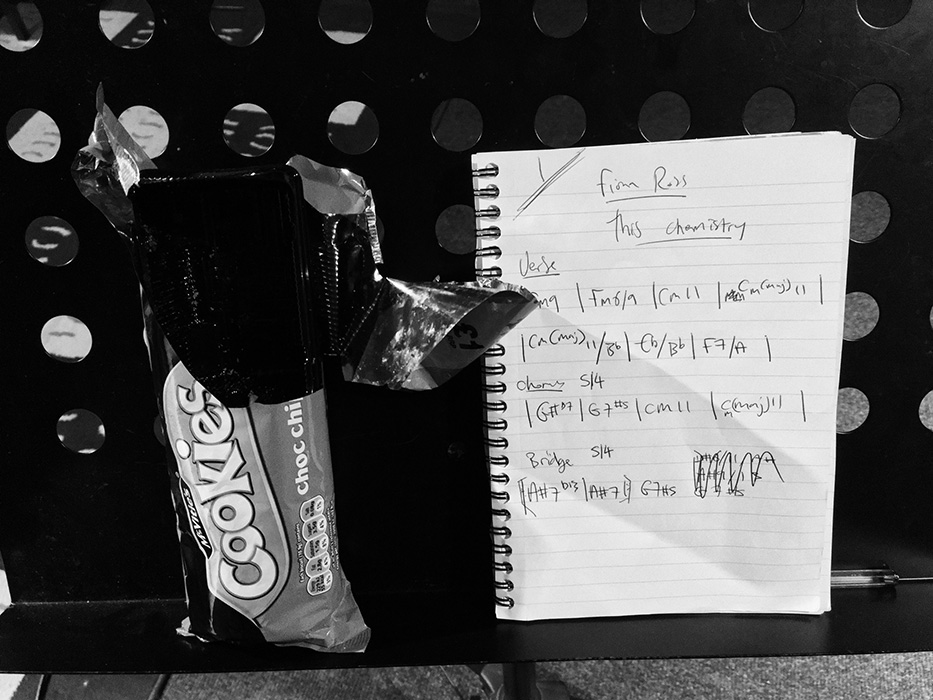 Cookies
choc chi
MARYLAND
£1
1
Fiona Ross
This chemistry
Verse
m9 | Fm6/9 | Cm11 | Cm(maj)11 |
| Cm(maj)11/Bb | Eb/Bb | F7/A |
Chorus 5/4
| G#b7 | G7#5 | Cm11 | Cm(maj)11 |
Bridge 5/4
[A#7b13 | A#7] G7#5